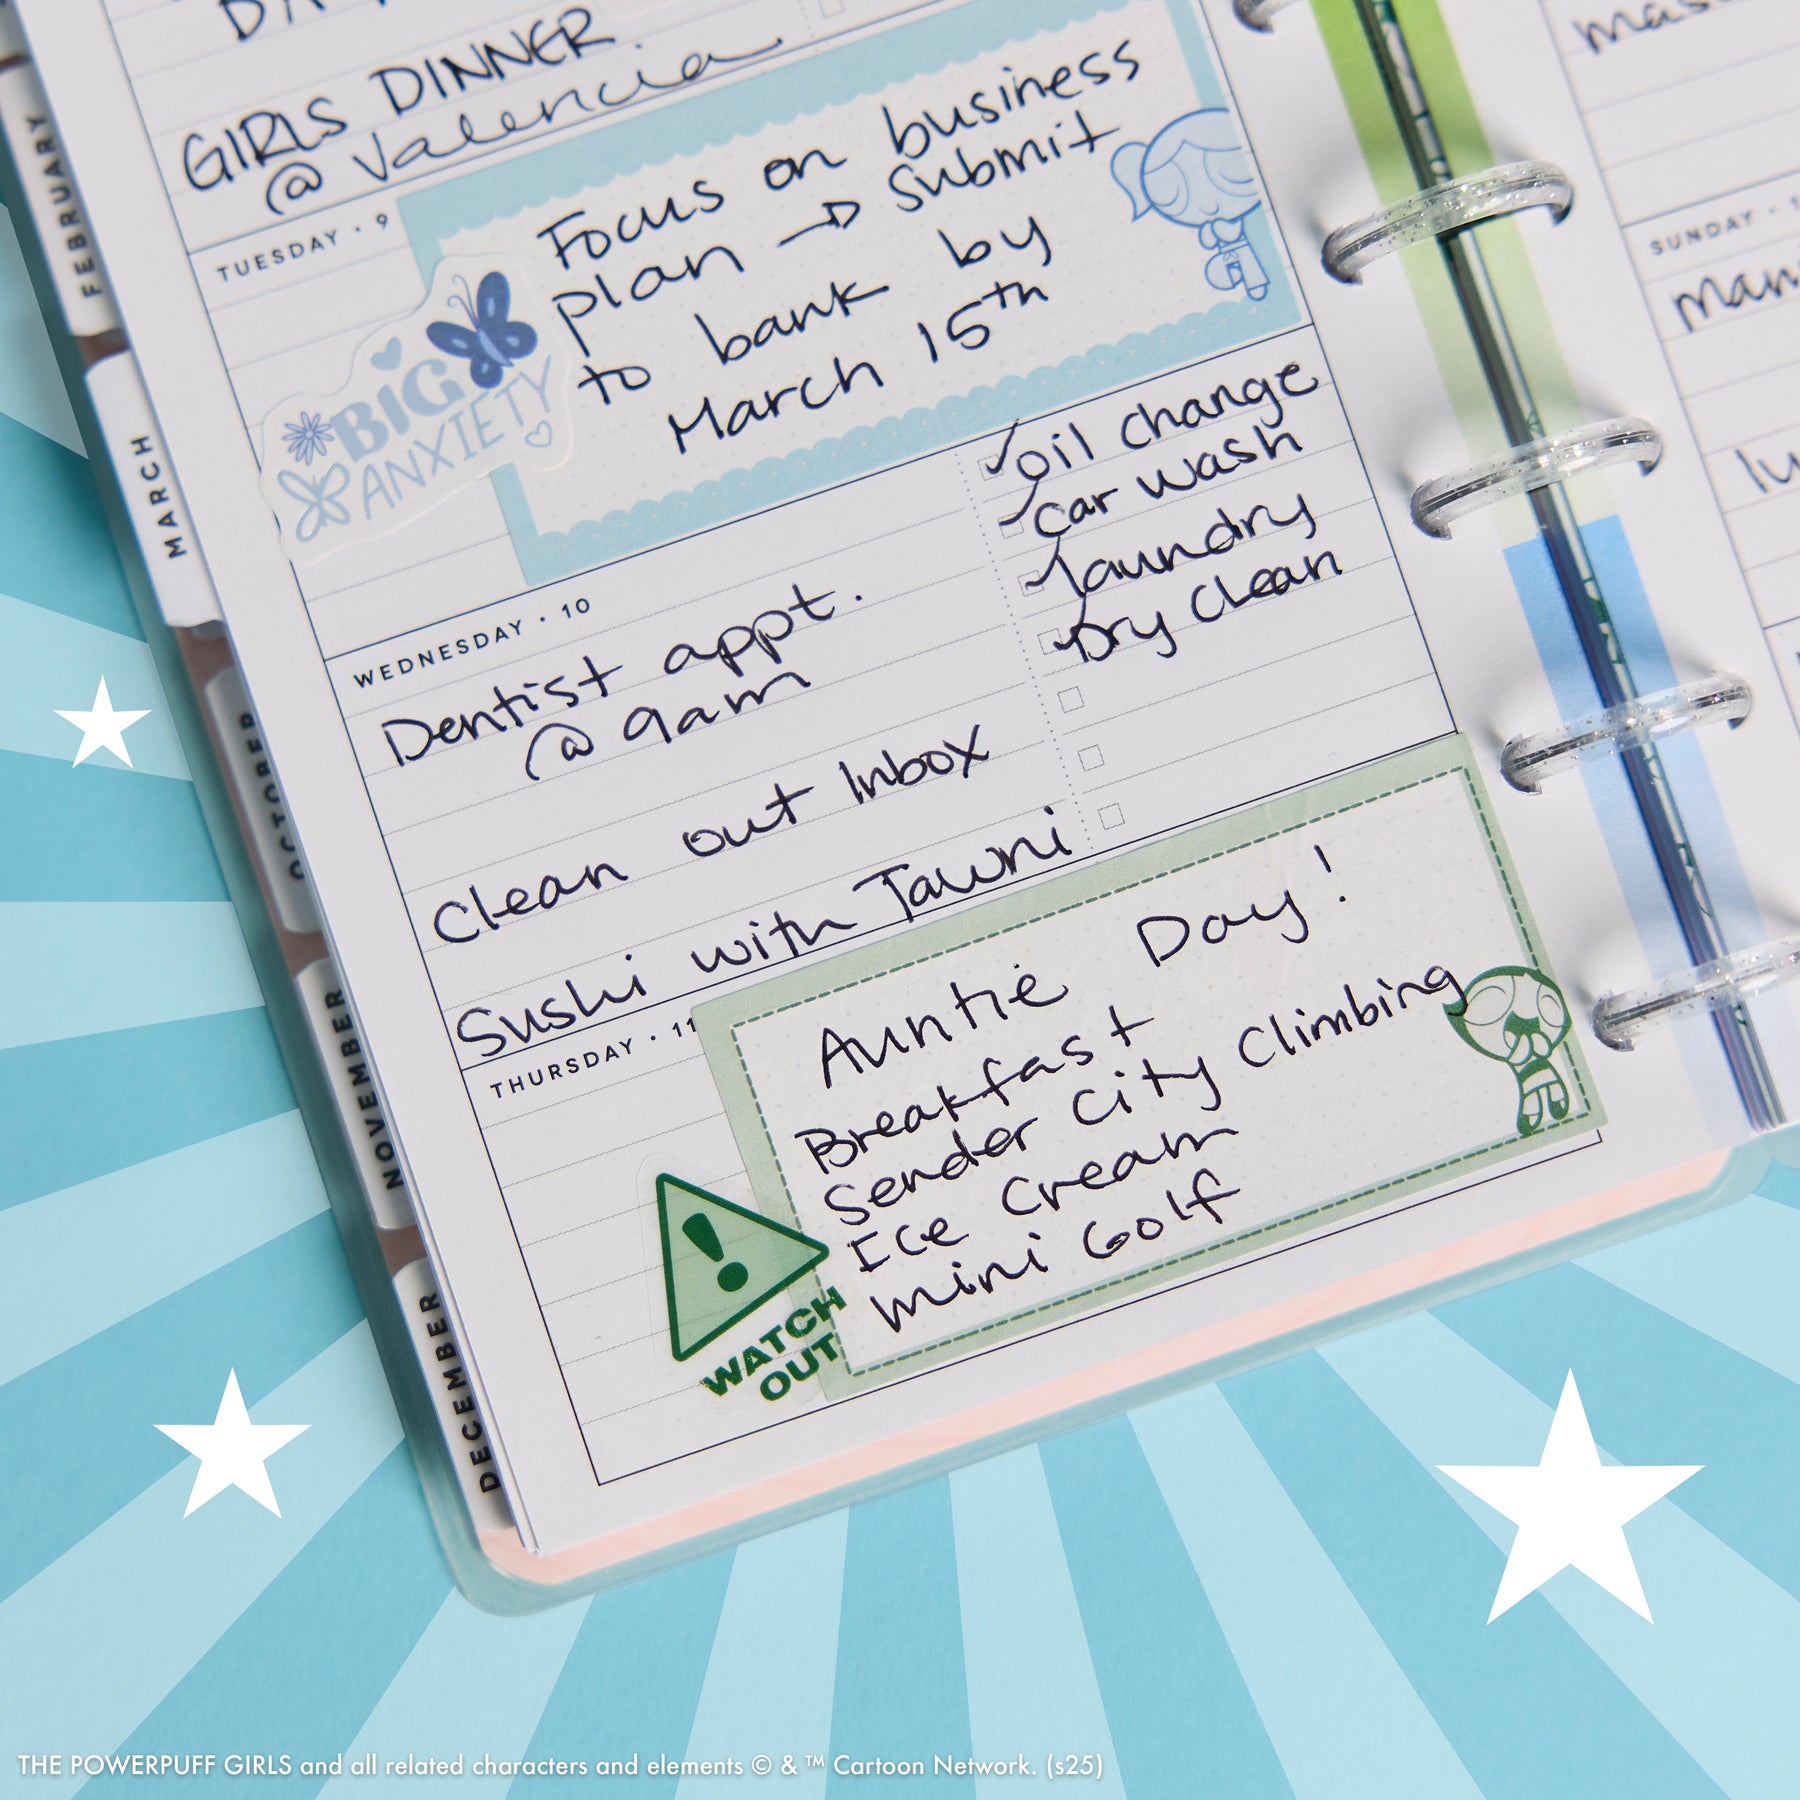 GIRLS DINNER
@ Valencia
TUESDAY · 9
Focus on business
plan → submit
to bank by
March 15th
BIG
ANXIETY
WEDNESDAY · 10
Dentist appt.
@ 9am
Clean out Inbox
Sushi with Tawni
oil change
car wash
laundry
Dry Clean
THURSDAY · 11
Auntie Day!
Breakfast
Sender City Climbing
Ice Cream
mini Golf
WATCH
OUT!
FEBRUARY
MARCH
OCTOBER
NOVEMBER
DECEMBER
SUNDAY
THE POWERPUFF GIRLS and all related characters and elements © & ™ Cartoon Network. (s25)